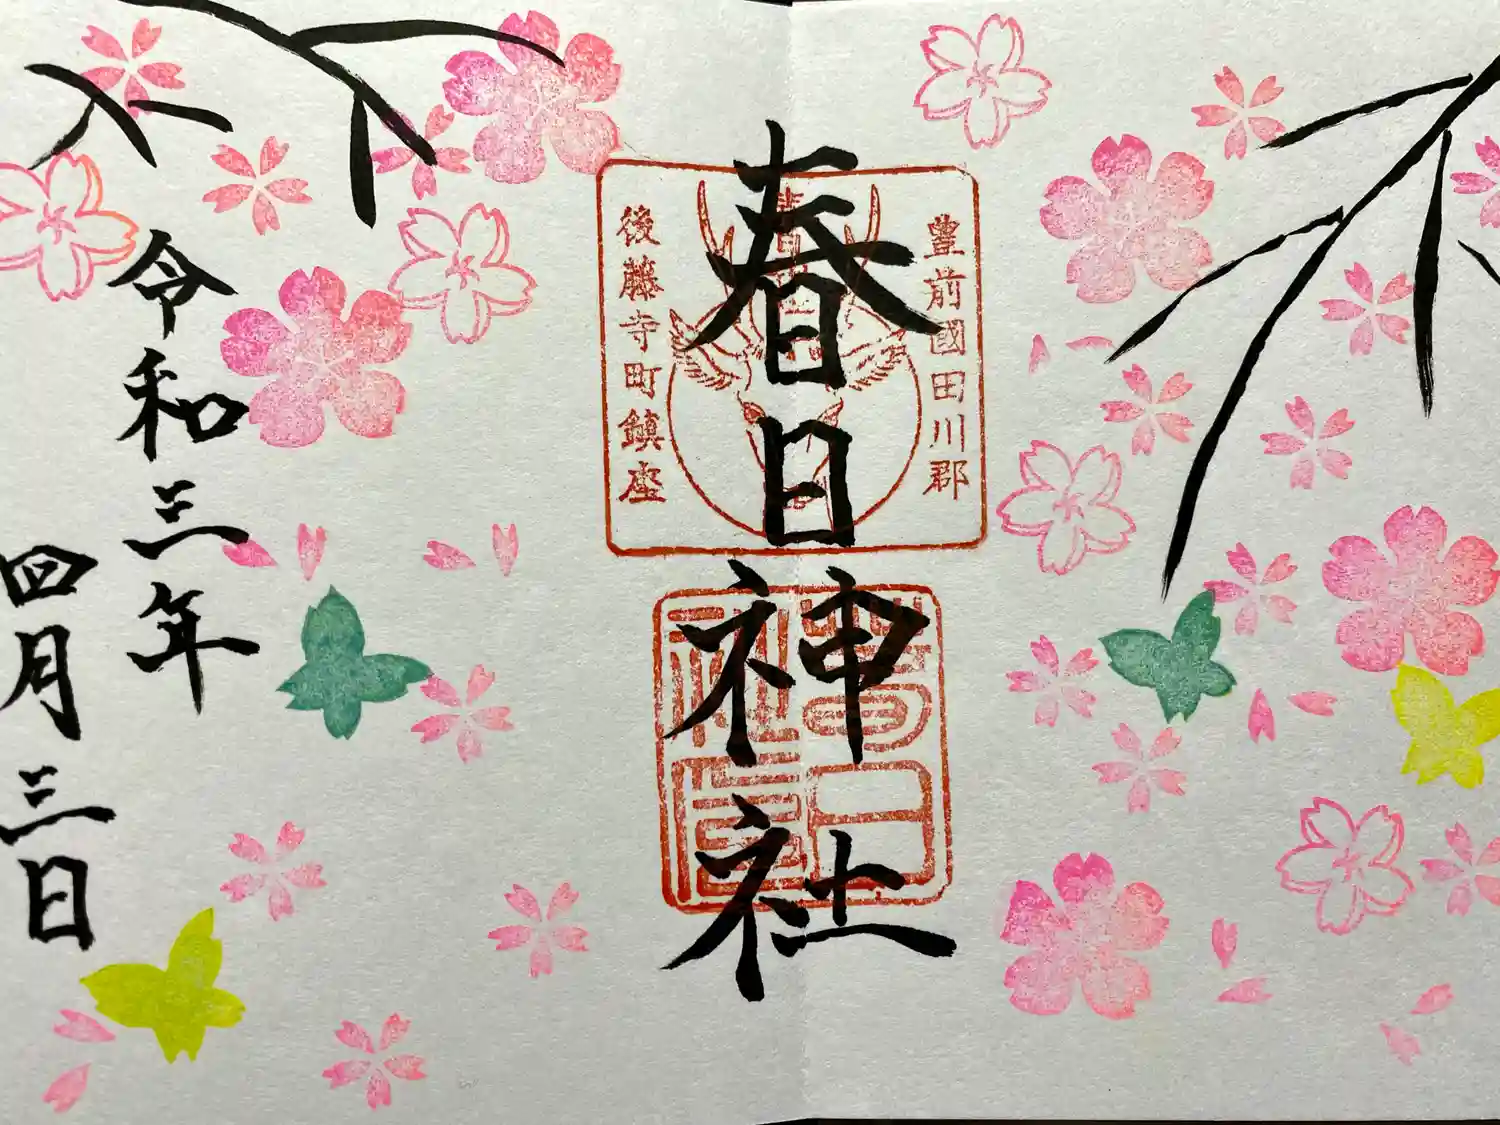 豊前國田川郡
春日神社
後藤寺町鎮座
春日
社印
令和三年
四月三日